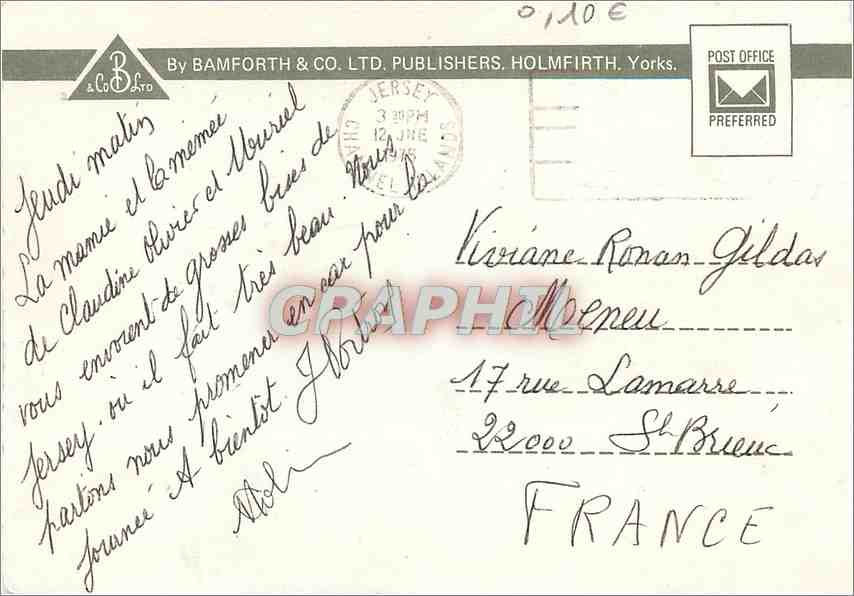 0,10 €
B
& Co LTD
By BAMFORTH & CO. LTD. PUBLISHERS. HOLMFIRTH. Yorks.
POST OFFICE
PREFERRED
JERSEY
3 30 PM
12 JNE
CHANNEL ISLANDS
Jeudi matin
La mamie et la mémée
de Claudine Olivier et Muriel
vous envoient de grosses bises de
Jersey. où il fait très beau. Nous
partons nous promener en car pour la
journée A bientôt.
Viviane Ronan Gildas
17 rue Lamarre
22000 St Brieuc
FRANCE
CPAPHIL